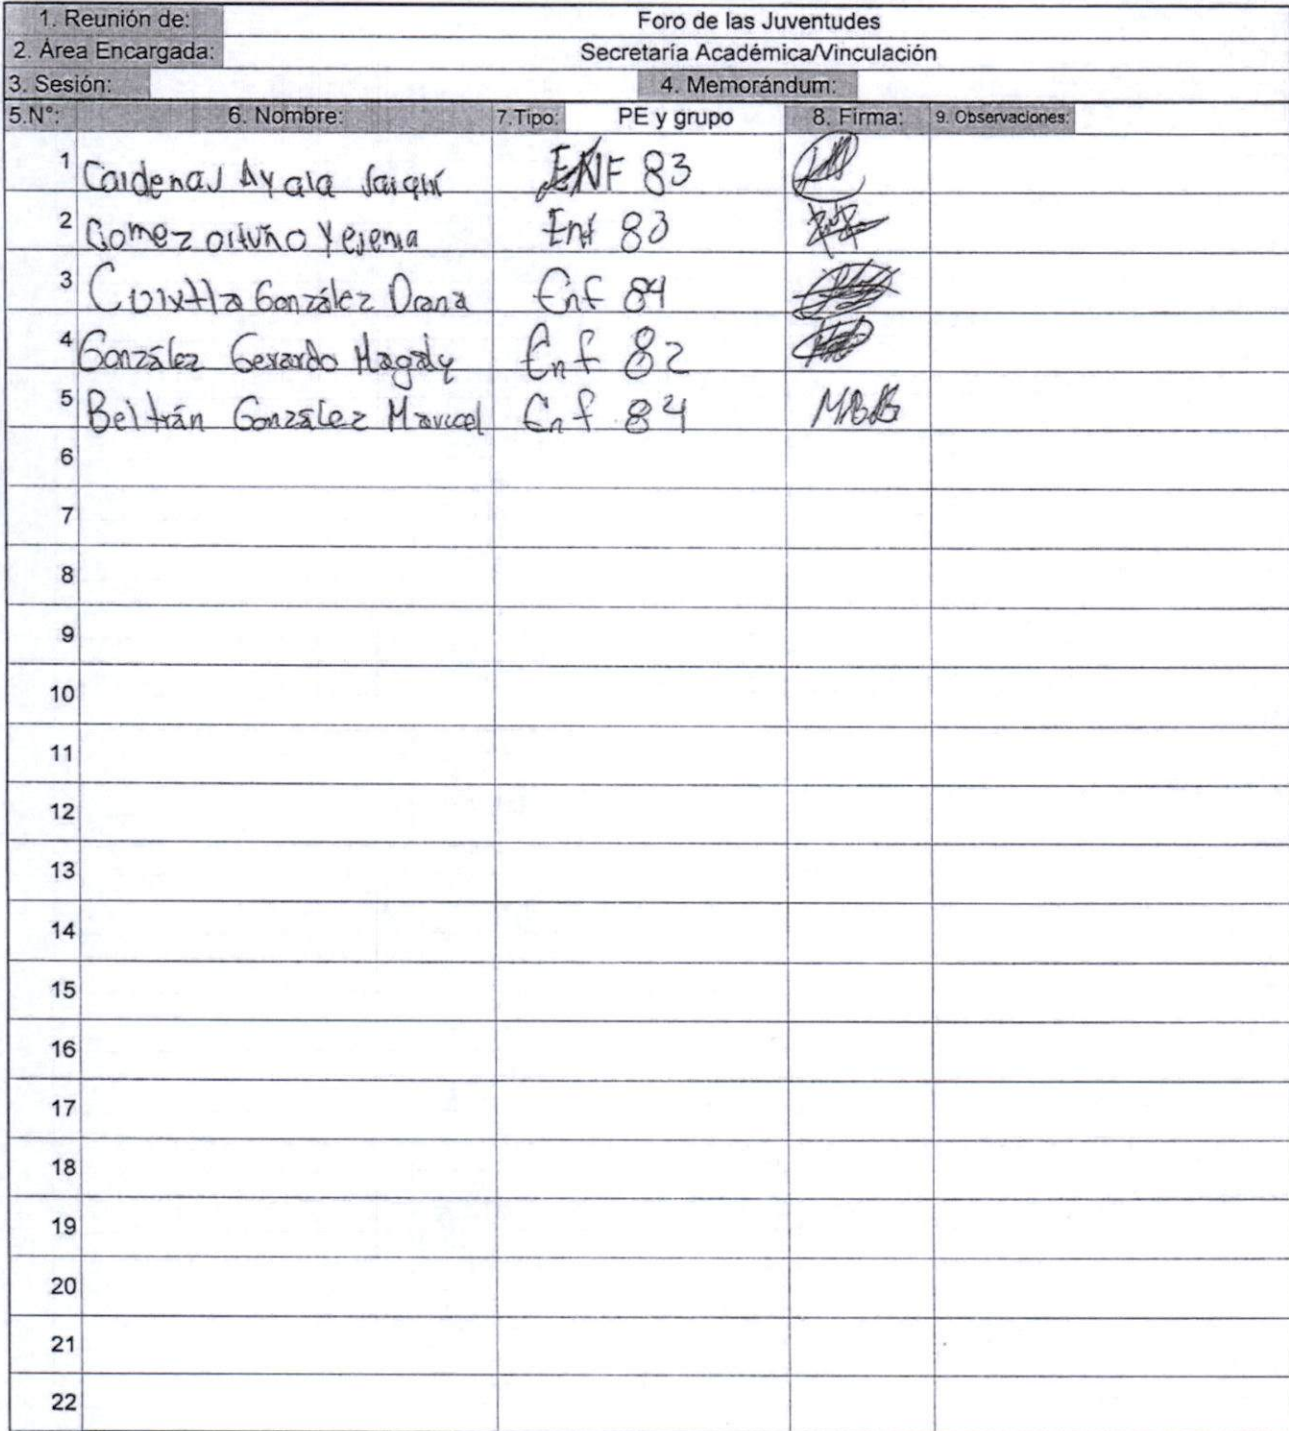 1. Reunión de: Foro de las Juventudes
2. Área Encargada: Secretaría Académica/Vinculación
3. Sesión: 4. Memorándum:
5.N°: 6. Nombre: 7.Tipo: PE y grupo 8. Firma: 9. Observaciones:
1 Cardenas Ayala ENF 83
2 Gomez ortuño Yesenia Enf 83
3 Cuixtla González Diana Enf 84
4 González Gerardo Magaly Enf 82
5 Beltrán González Maricel Enf 84
6
7
8
9
10
11
12
13
14
15
16
17
18
19
20
21
22